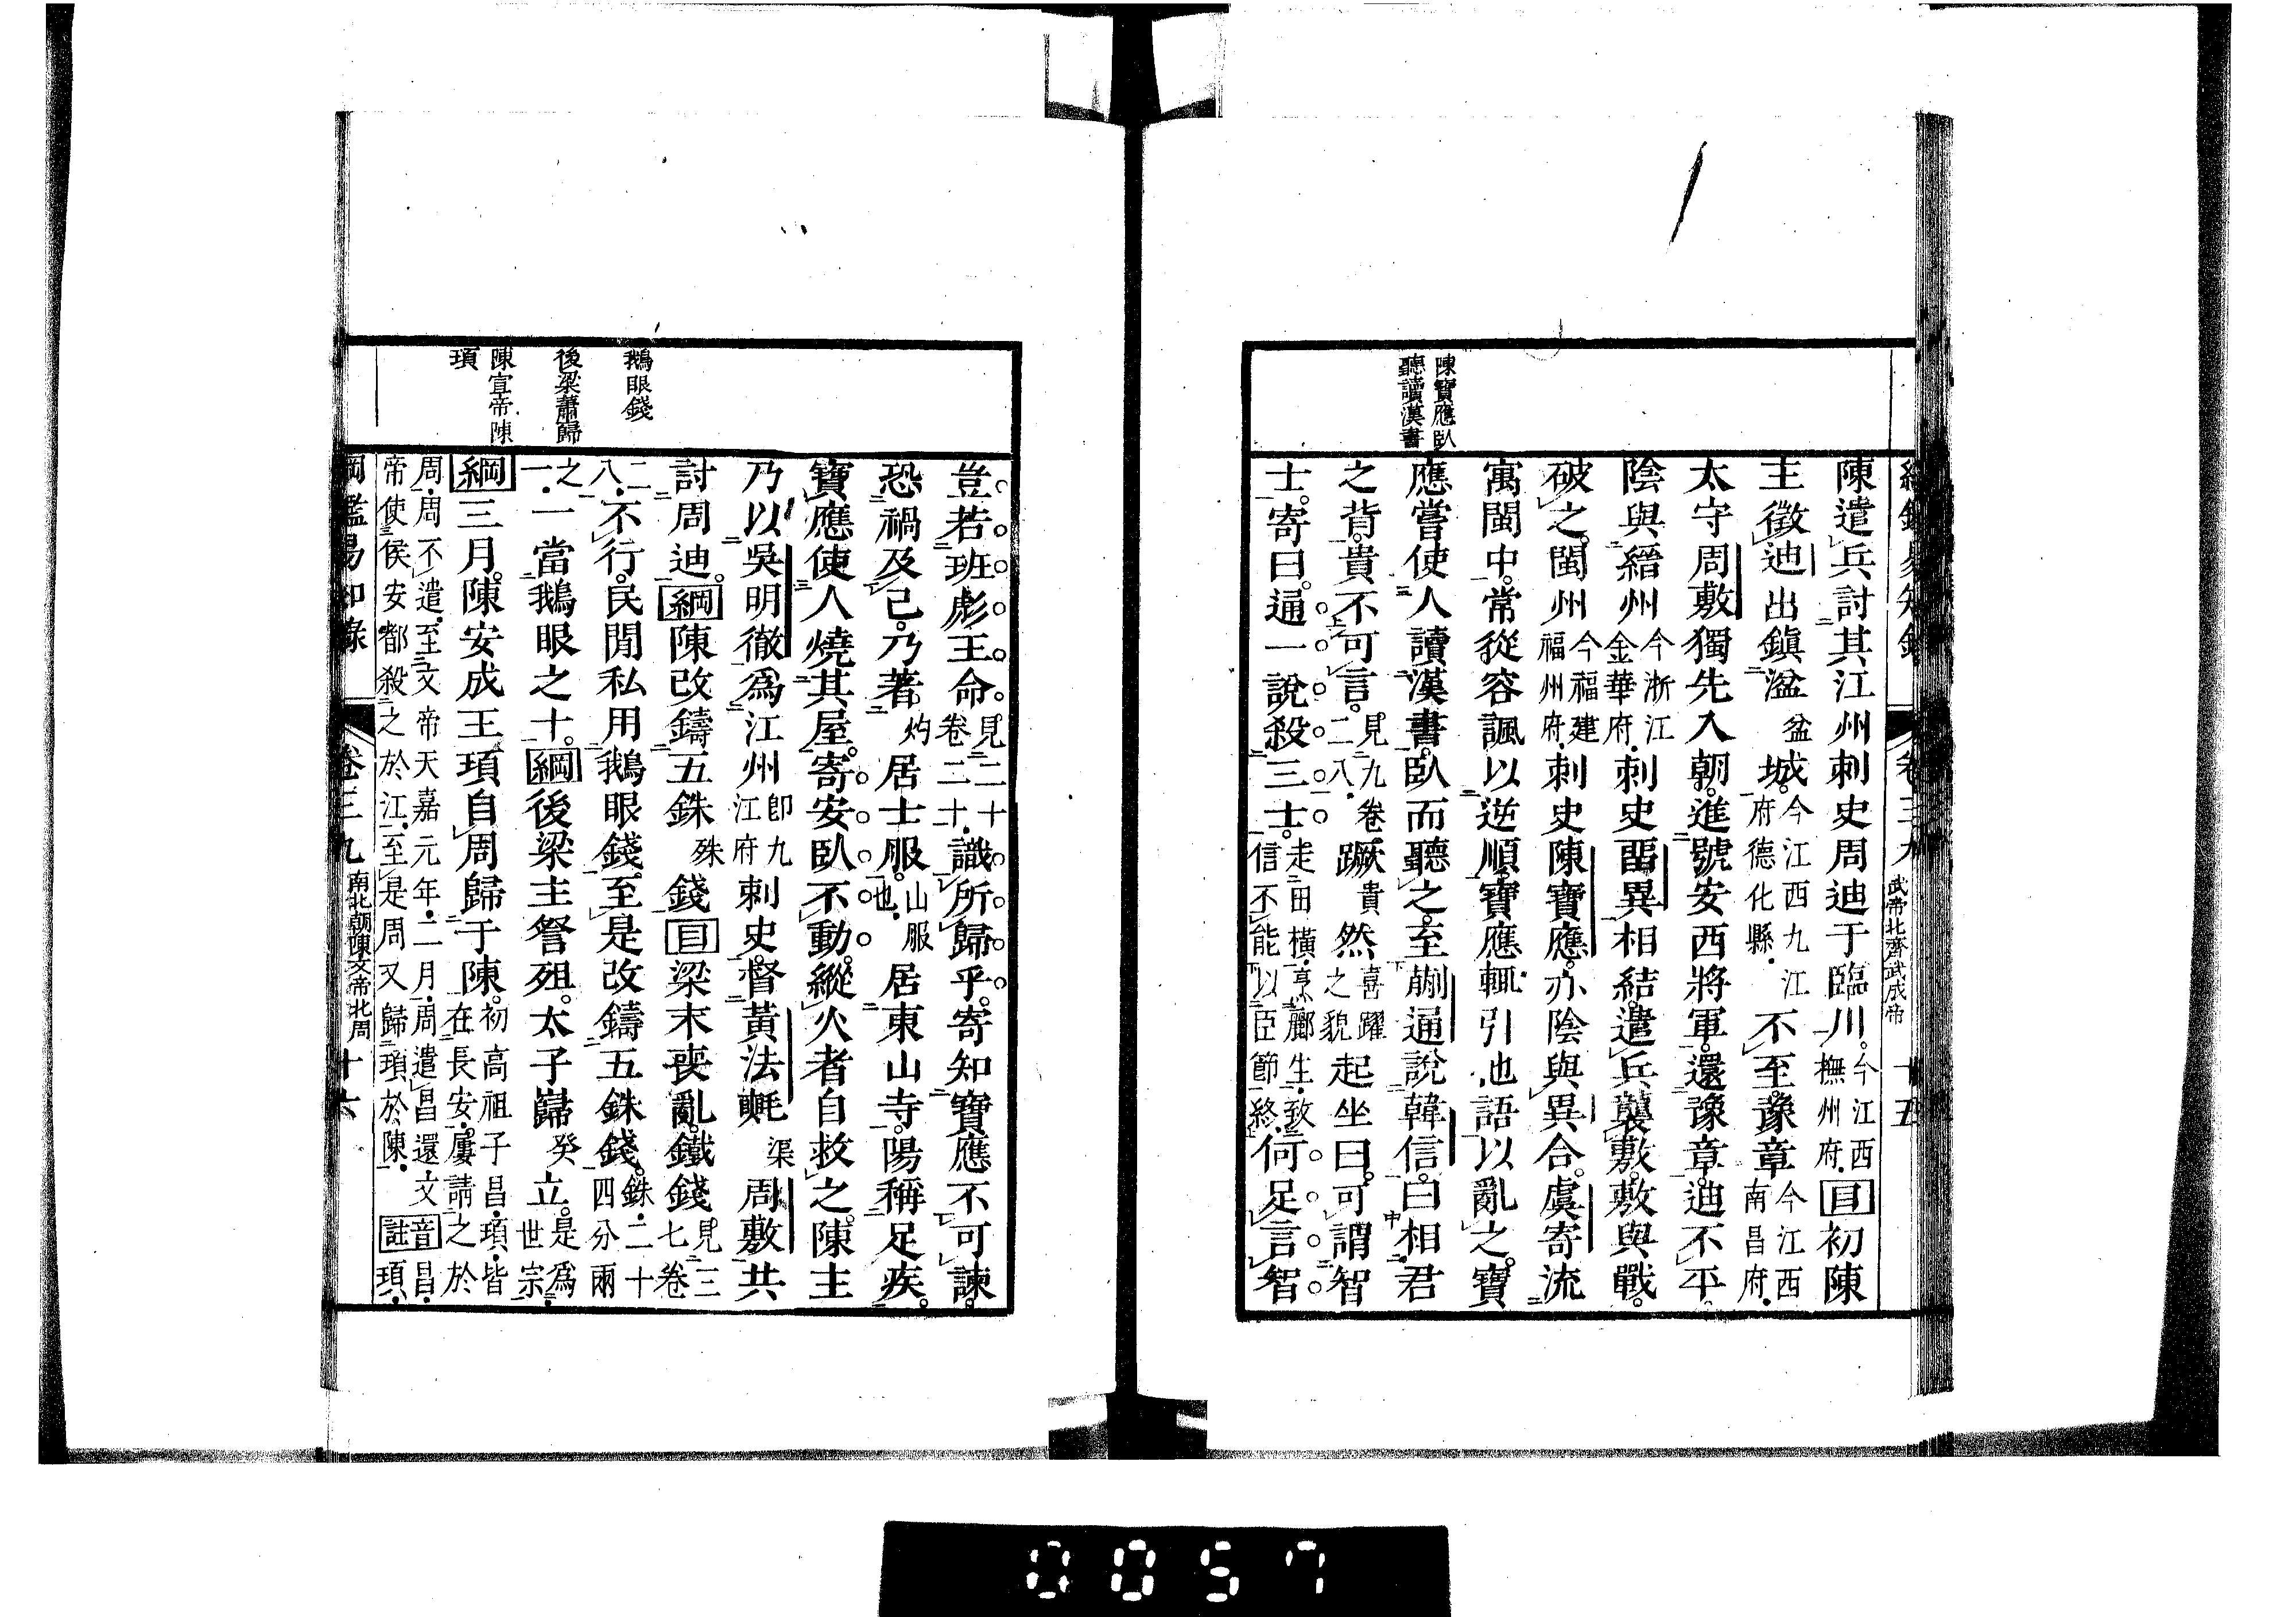 綱鑑易知錄 卷三九 武帝北齊武成帝 十五
陳寶應臥
聽讀漢書
陳遣兵討其江州刺史周迪于臨川。今江西撫州府。目初陳
主徵迪出鎮湓盆城。今江西九江府德化縣。不至。豫章今江西南昌府。
太守周敷獨先入朝。進號安西將軍。還豫章。迪不平。
陰與縉州今浙江金華府。刺史畱異相結。遣兵襲敷。敷與戰。
破之。閩州今福建福州府。刺史陳寶應。亦陰與異合。虞寄流
寓閩中。常從容諷以逆順。寶應輒引他語以亂之。寶
應嘗使人讀漢書。臥而聽之。至蒯通說韓信。曰相君
之背。貴不可言。見九卷二八。蹶貴然喜躍之貌起坐曰。可謂智
士。寄曰。通一說殺三士。走田橫。亨酈生。致信不能以臣節終。何足言智
豈若班彪王命見二十卷二十。識所歸乎。寄知寶應不可諫。
恐禍及己。乃著灼居士服。山服也。居東山寺。陽稱足疾。
寶應使人燒其屋。寄安臥不動。縱火者自救之。陳主
乃以吳明徹爲江州卽九江府刺史。督黃法𣰰渠周敷共
討周迪。綱陳改鑄五銖殊錢目梁末喪亂。鐵錢見三七卷二
八。不行。民間私用鵝眼錢。至是改鑄五銖錢。銖。二十四分兩之
一。一當鵝眼之十。綱後梁主詧殂。太子巋癸立。是爲世宗。
綱三月。陳安成王頊自周歸于陳。初高祖子昌。頊。皆在長安。屢請之於
周。周不遣。至文帝天嘉元年。二月。周遣昌還。文帝使侯安都殺之於江。至是周又歸頊於陳。音註昌。頊。
鵝眼錢
後梁蕭歸
陳宣帝陳
頊
綱鑑易知錄 卷三九 南北朝陳文帝北周 十六
0057